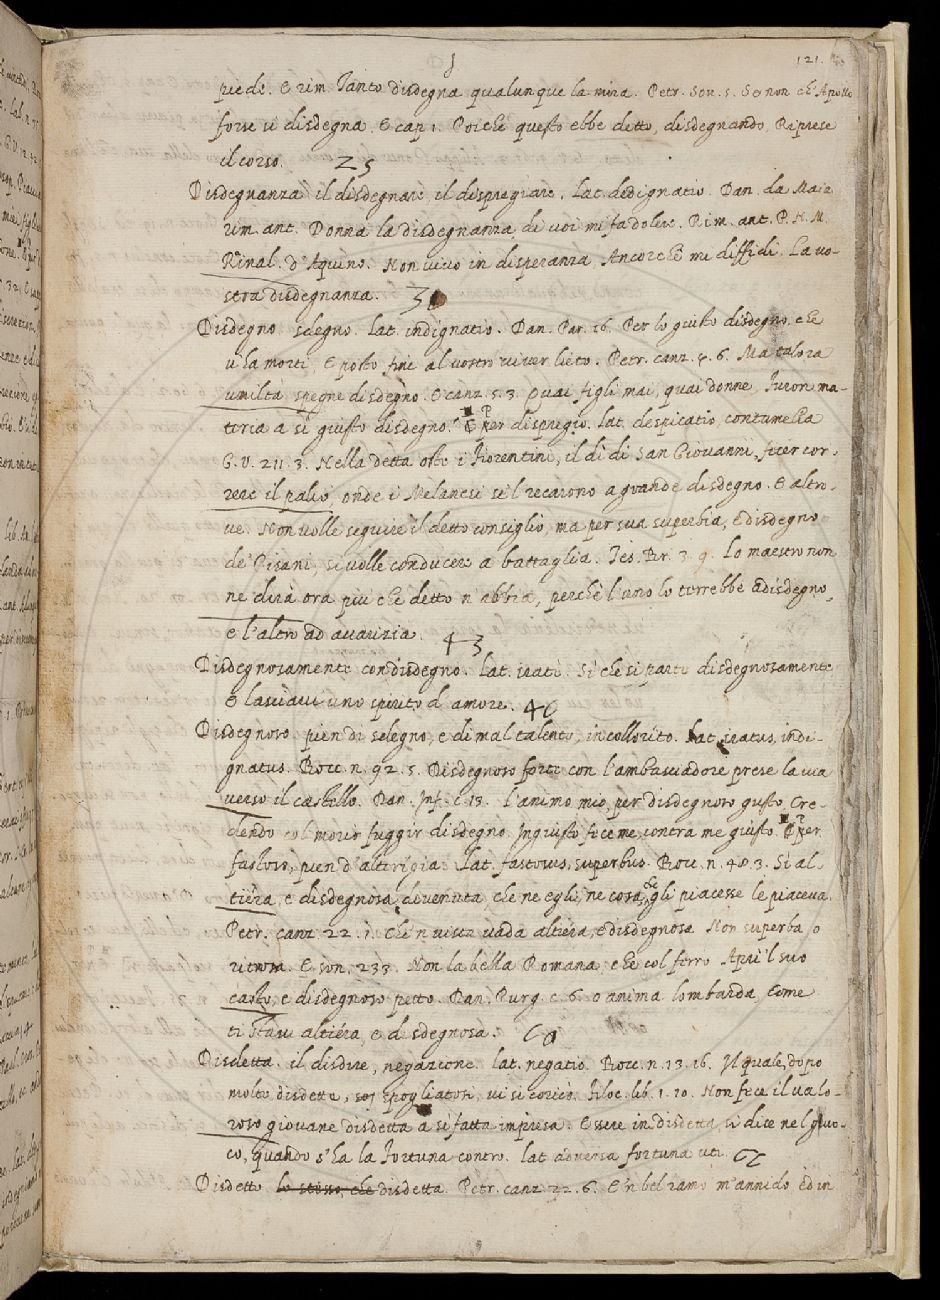 J 121.
piede. E rim. Tanto disdegna qualunque la mira. Petr. Son. 5. Se non che Apollo
forse si disdegna. E cap. 1. Poiche questo ebbe detto, disdegnando, Riprese
il corso. 25
Disdegnanza il disdegnare, il despregiare. Lat. dedignatio. Dan. da Maia
rim. ant. Donna la disdegnanza di voi mi fa dolere. Rim. ant. P. N. M.
Rinal. d'Aquino. Non vivo in disperanza, Ancorche mi diffidi. La vo-
stra disdegnanza. 3
Disdegno sdegno. Lat. indignatio. Dan. Par. 16. Per lo giusto disdegno, che
v'ha morti, E posto fine al vostro viver lieto. Petr. canz. 6. Ma talora
umiltà spegne disdegno. E canz. 5. 3. Quai figli mai, quai donne, Furon ma-
teria a sì giusto disdegno. E per dispregio. Lat. despicatio, contumelia
G. V. 211. 3. Nella detta oste i Fiorentini, il dì di San Giovanni, fecer cor-
rere il palio onde i Melanesi se'l recarono a grande disdegno. E altro-
ve. Non volle seguire il detto consiglio, ma per sua superbia, e disdegno
de' Pisani, si volle conducere a battaglia. Tes. Br. 3. 9. Lo maestro non
ne dirà ora più che detto n'abbia, perchè l'uno lo torrebbe a disdegno,
e l'altro ad avarizia. 43
Disdegnosamente con disdegno. Lat. iratè. Sì che si partì disdegnosamente
E lasciavi uno spirito d'amore. 4
Disdegnoso pien di sdegno, e di mal talento, incollorito. Lat. iratus, indi-
gnatus. Bocc. n. 92. 5. Disdegnoso forte con l'ambasciadore prese la via
verso il castello. Dan. Inf. c. 13. L'animo mio, per disdegnoso gusto, Cre-
dendo col morir fuggir disdegno, Ingiusto fece me, contra me giusto. E per
fastoso, pien d'alterigia. Lat. fastosus, superbus. Bocc. n. 48. 3. Sì al-
tiera, e disdegnosa divenuta, che ne egli, ne cosa, che gli piacesse le piaceva.
Petr. canz. 22. 1. Ch'n vista vada altiera, e disdegnosa Non superba, o
ritrosa. E son. 233. Non la bella Romana, che col ferro Apri'l suo
casto, e disdegnoso petto. Dan. Purg. c. 6. O anima lombarda, Come
ti stavi altiera, e disdegnosa.
Disdetta. il disdire, negazione. Lat. negatio. Bocc. n. 13. 16. Il quale, dopo
molte disdette, spogliatosi, vi si coricò. Filoc. lib. 1. 10. Non fece il valo-
roso giovane disdetta a sì fatta impresa. Essere in disdetta, si dice nel giuo-
co, quando s'ha la fortuna contro. Lat. adversa fortuna uti.
Disdetto lo stesso, che disdetta. Petr. canz. 22. 6. E'n bel ramo m'annido, ed in